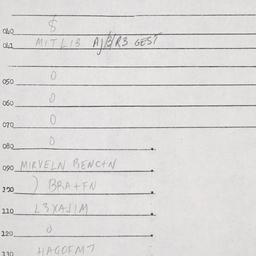 040 $
041 MITLIB AJ/B/RS GEST
050 0
060 0
070 0
080 0
090 MIRVELN BENCTN
100 ) BRATFN
110 L3XAJIM
120 0
130 HAGOFMT